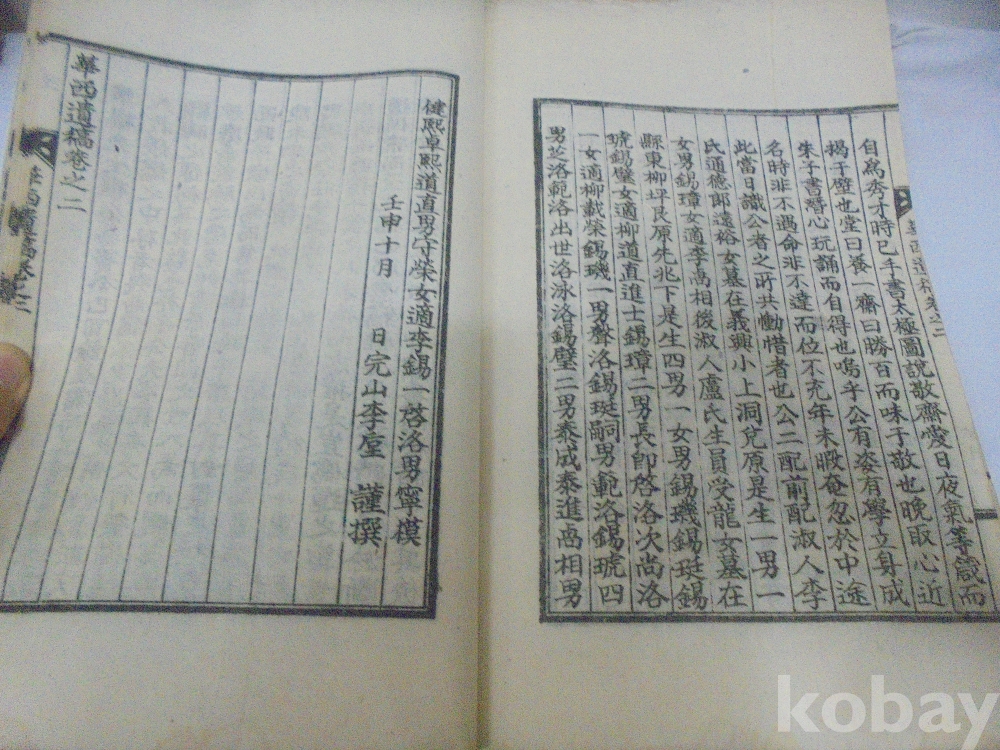 自爲秀才時已手書太極圖說敬齋愛日夜氣等箴而
揭于壁也堂曰養一齋曰勝百而味于敬也晚取心近
朱子書潛心玩誦而自得也嗚乎公有姿有學立身成
名時非不遇命非不達而位不充年未暇奄忽於中途
此當日識公者之所共慟惜者也公二配前配淑人李
氏通德郎遠裕女墓在義興小上洞兌原是生一男一
女男錫璋女適李卨相後淑人盧氏生員受龍女墓在
縣東柳坪艮原先兆下是生四男一女男錫璣錫珽錫
琥錫璧女適柳道直進士錫璋二男長卽啓洛次尙洛
一女適柳載榮錫璣一男聲洛錫珽嗣男範洛錫琥四
男芝洛範洛出世洛泳洛錫璧二男泰成泰進卨相男
華西遺稿卷之二
健熙卓熙道直男守榮女適李錫一啓洛男寧模
壬申十月 日完山李 謹撰
華西遺稿卷之二
華西遺稿卷之二
kobay